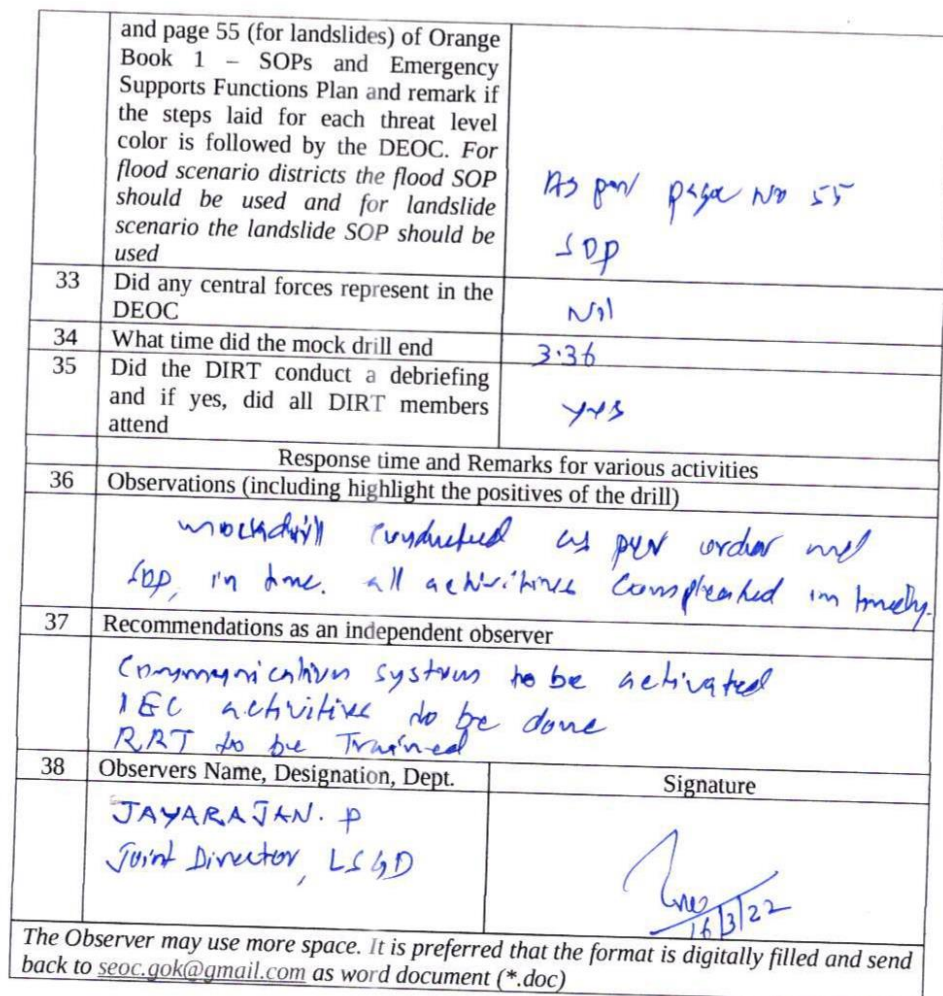 and page 55 (for landslides) of Orange
Book 1 – SOPs and Emergency
Supports Functions Plan and remark if
the steps laid for each threat level
color is followed by the DEOC. For
flood scenario districts the flood SOP
should be used and for landslide
scenario the landslide SOP should be
used
As per page No 55
SOP
33 Did any central forces represent in the
DEOC
Nil
34 What time did the mock drill end 3.36
35 Did the DIRT conduct a debriefing
and if yes, did all DIRT members
attend
yes
Response time and Remarks for various activities
36 Observations (including highlight the positives of the drill)
mockdrill conducted as per order and
SOP, in time. all activities in timely.
37 Recommendations as an independent observer
Communication system to be activated
IEC activities to be done
RRT to be Trained
38 Observers Name, Designation, Dept. Signature
JAYARAJAN. P
Joint Director, LSGD
16/3/22
The Observer may use more space. It is preferred that the format is digitally filled and send
back to seoc.gok@gmail.com as word document (*.doc)